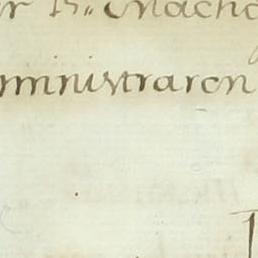 r B.. Macho
ministraron